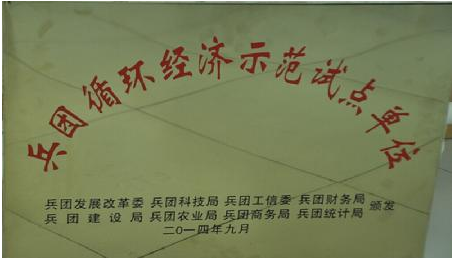 兵团循环经济示范试点单位
兵团发展改革委 兵团科技局 兵团工信委 兵团财务局
兵团建设局 兵团农业局 兵团商务局 兵团统计局 颁发
二〇一四年九月